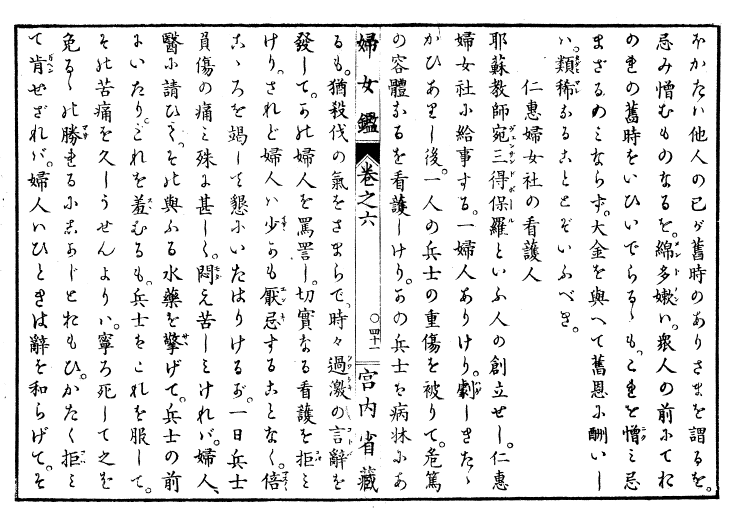 おかたハ他人の己が舊時のありさまを謂るを。
忌み憎むものなるを。綿多嫩ハ。衆人の前にてお
のれの舊時をいひいでらるゝも。これを憎ミ忌
まざるのミならず。大金を與へて舊恩に酬いし
ハ。類稀なることとぞいふべき。
仁惠婦女社の看護人
耶蘇教師宛三得保羅といふ人の創立せし。仁惠
婦女社に給事する。一婦人ありけり。劇しきたゝ
かひありし後。一人の兵士の重傷を被りて。危篤
の容體なるを看護しけり。かの兵士を病牀にあ
婦女鑑 卷之六 ○四十一 宮内省藏
るも。猶殺伐の氣をさまらで。時々過激の言辭を
發して。かの婦人を罵詈し。切實なる看護を拒ミ
けり。されど婦人ハ少かも厭忌することなく。倍
こゝろを竭して懇にいたはりけるが。一日兵士
負傷の痛ミ殊に甚しく。悶え苦しミければ。婦人、
醫に請ひて。その與ふる水藥を擎げて。兵士の前
にいたり。これを羞むるも。兵士をこれを服して。
その苦痛を久しうせんよりハ。寧ろ死して之を
免るゝの勝れるにあらじとおもひ。かたく拒ミ
て肯ぜざれバ。婦人ハひときは辭を和らげて。そ